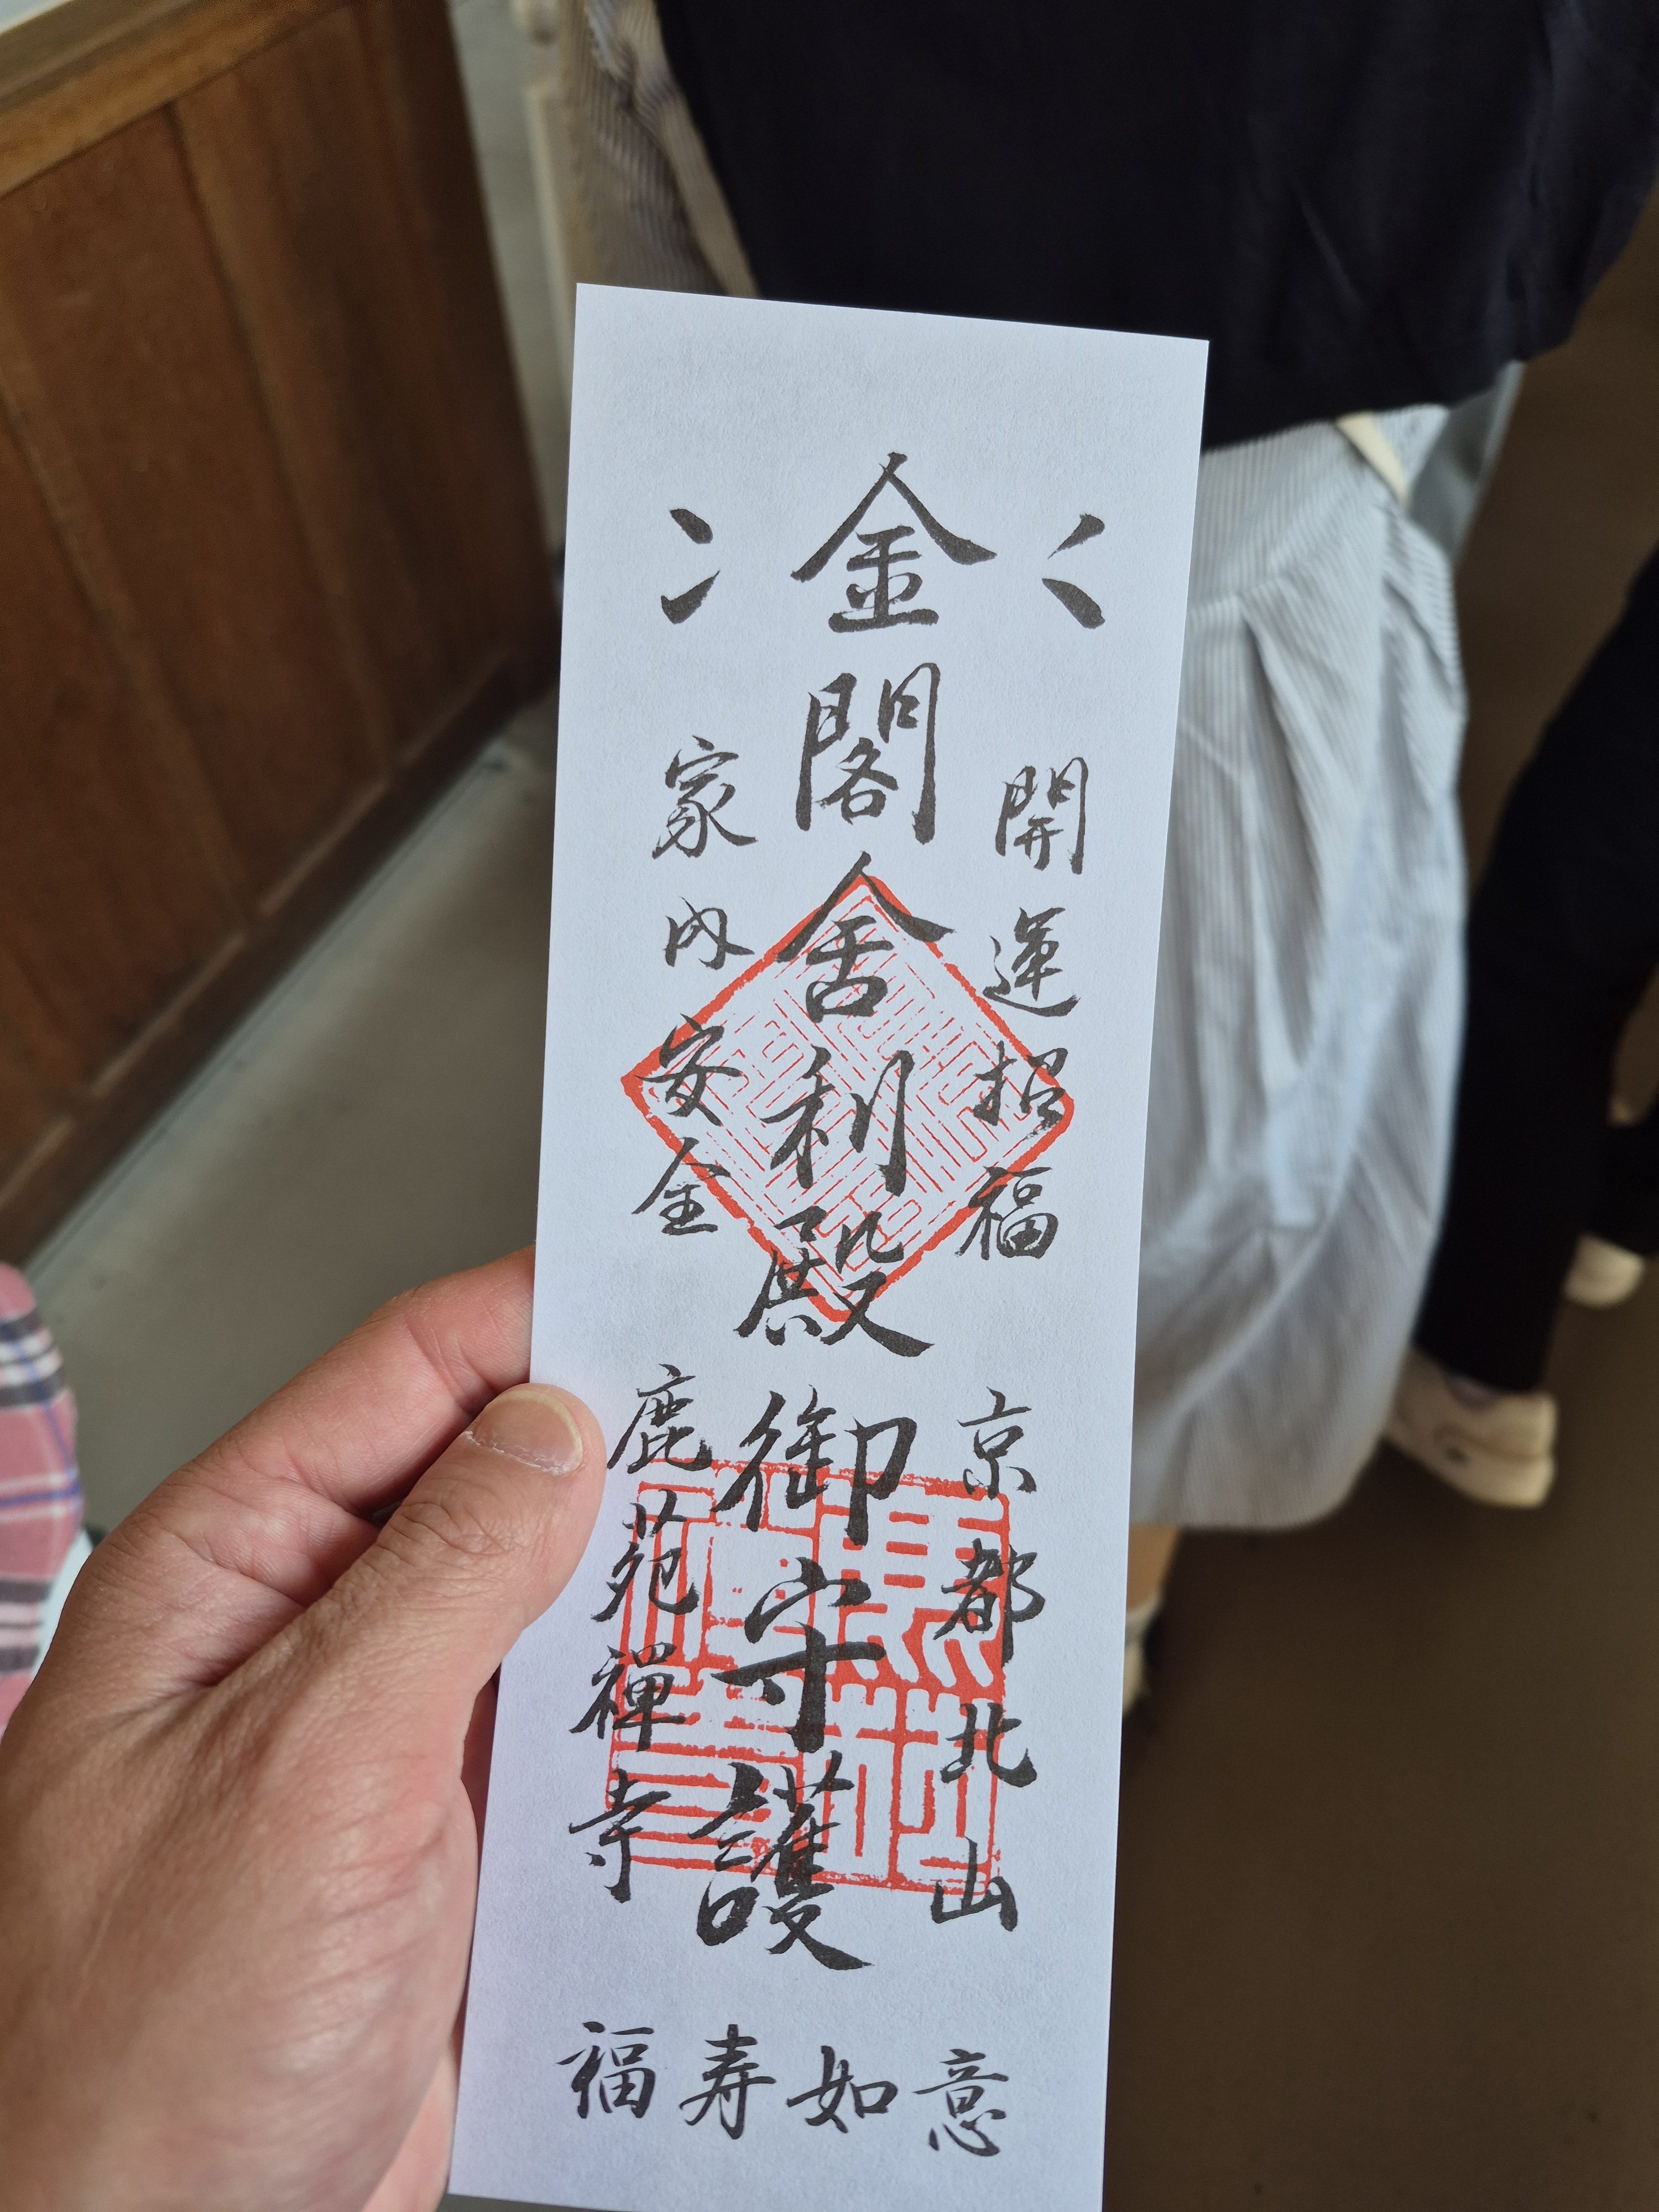 開運招福
京都北山
金閣舍利殿
御守護
家内安全
鹿苑禅寺
福寿如意